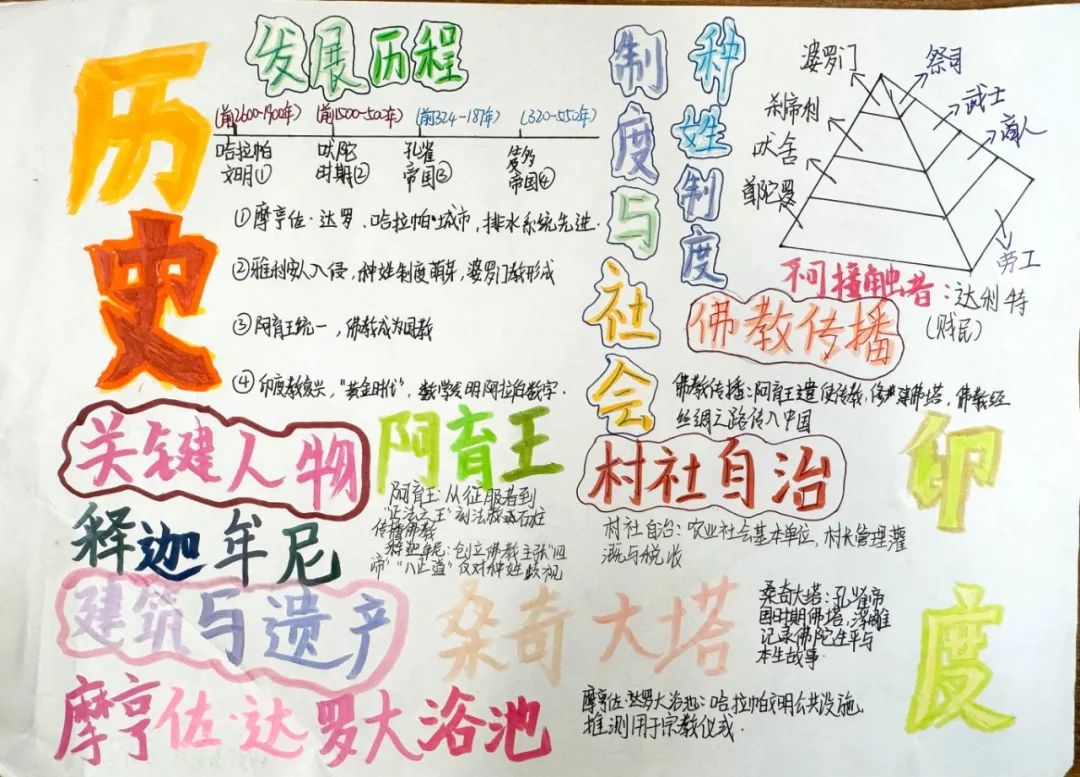 历史
发展历程
(前2600-1900年) (前1500-500年) (前324-187年) (320-550年)
哈拉帕 吠陀 孔雀 笈多
文明① 时期② 帝国③ 帝国④
①摩亨佐·达罗、哈拉帕城市，排水系统先进.
②雅利安人入侵，种姓制度萌芽，婆罗门教形成
③阿育王统一，佛教成为国教
④印度教复兴，“黄金时代”，数学发明阿拉伯数字.
制度与社会
种姓制度
婆罗门 祭司
刹帝利 武士
吠舍 商人
首陀罗 劳工
不可接触者：达利特
(贱民)
佛教传播
佛教传播：阿育王遣使传教，修建佛塔，佛教经
丝绸之路传入中国
关键人物
阿育王
释迦牟尼
阿育王：从征服者到
“正法之王”
传播佛教
释迦牟尼：创立佛教主张“四
帝”“八正道”反对种姓歧视
村社自治
村社自治：农业社会基本单位，村长管理灌
溉与税收
印度
建筑与遗产
桑奇大塔
桑奇大塔：孔雀帝
国时期佛塔，浮雕
记录佛陀生平与
本生故事.
摩亨佐·达罗大浴池
摩亨佐·达罗大浴池：哈拉帕文明公共设施
推测用于宗教仪式.